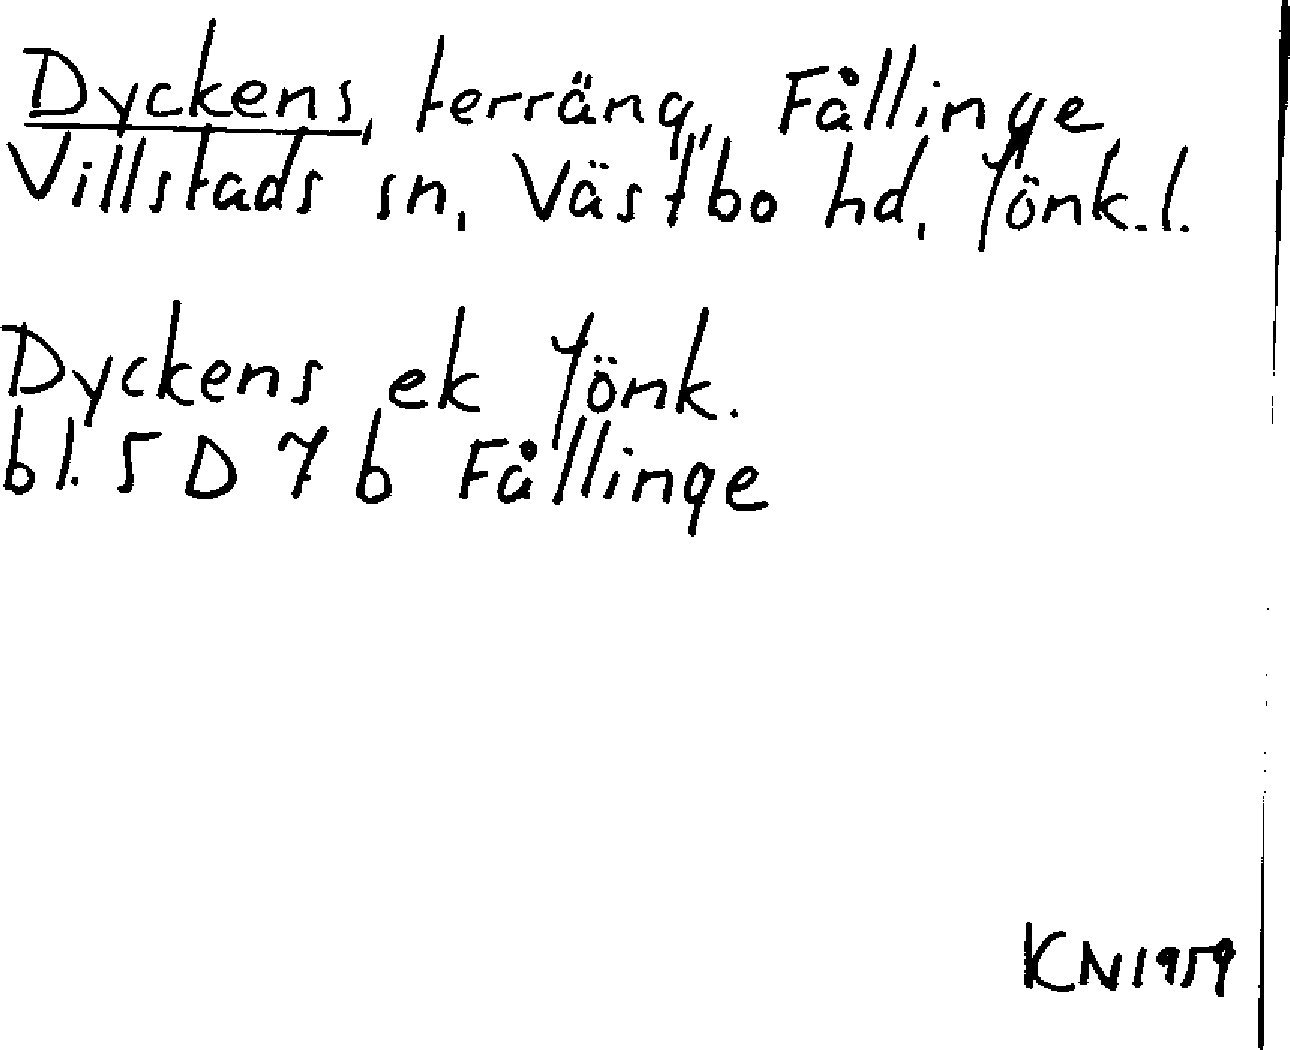 Dyckens, terräng, Fållinge
Villstads sn, Västbo hd, Jönk.l.
Dyckens ek Jönk.
bl. 5 D 7 b Fållinge
KN 1959